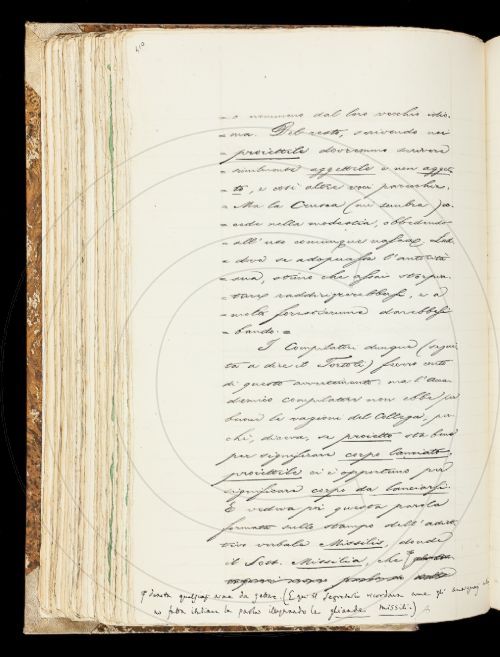 40
= o nemmeno dal loro vecchio idio-
= ma. Del resto, scrivendo noi
= proiettile dovremmo scrivere
= similmente oggettile e non ogget-
= to, e così altre voci parecchie.
= Ma la Crusca (mi sembra)
= cede nella modestia, obbedendo
= all'uso comunque nasca;
= dove se adoperasse l'autorità
= sua, storie che assai storpia-
= raddirizzerebbersi, e a
= molti darebbesi
= bando. =
I Compilatori dunque (segui-
ta a dire il Tortoli) fecero conto
di questo avvertimento, ma l'Acca-
demico compilatore non ebbe per
buone le ragioni del Collega, per-
chè, diceva, se proietto sta bene
per significare corpo lanciato,
proiettile ci è opportuno per
significare corpo da lanciarsi.
E vedeva poi questa parola
formata sullo stampo dell'adiet-
tivo verbale Missilis, donde
il Sost. Missilia, che
denota qualunque arme da gettare. (E qui il Segretario ricordava come gli
fatta italiana la parola le ghiande missili.)